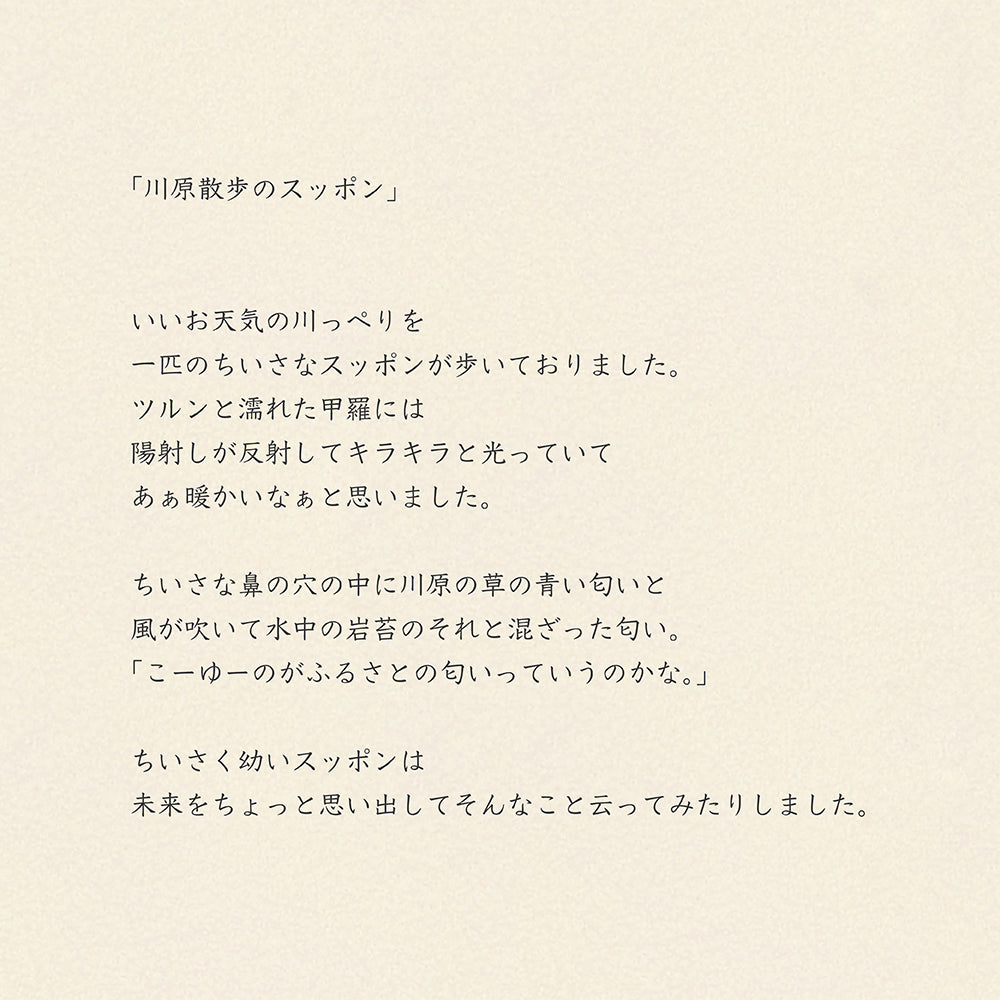 「川原散歩のスッポン」
いいお天気の川っぺりを
一匹のちいさなスッポンが歩いておりました。
ツルンと濡れた甲羅には
陽射しが反射してキラキラと光っていて
あぁ暖かいなぁと思いました。
ちいさな鼻の穴の中に川原の草の青い匂いと
風が吹いて水中の岩苔のそれと混ざった匂い。
「こーゆーのがふるさとの匂いっていうのかな。」
ちいさく幼いスッポンは
未来をちょっと思い出してそんなこと云ってみたりしました。